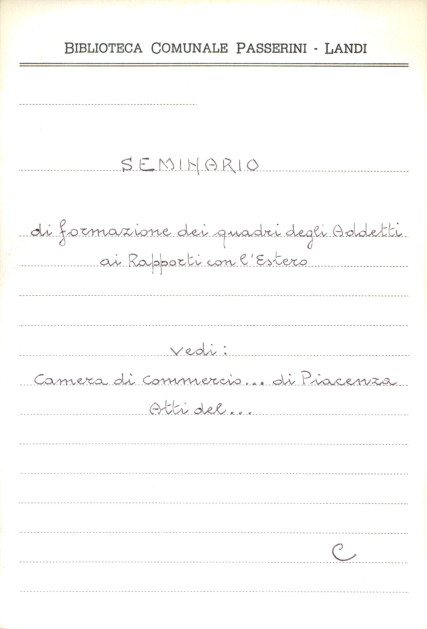 BIBLIOTECA COMUNALE PASSERINI - LANDI
SEMINARIO
di formazione dei quadri degli Addetti
ai Rapporti con l'Estero
vedi:
Camera di Commercio... di Piacenza
Atti del...
C